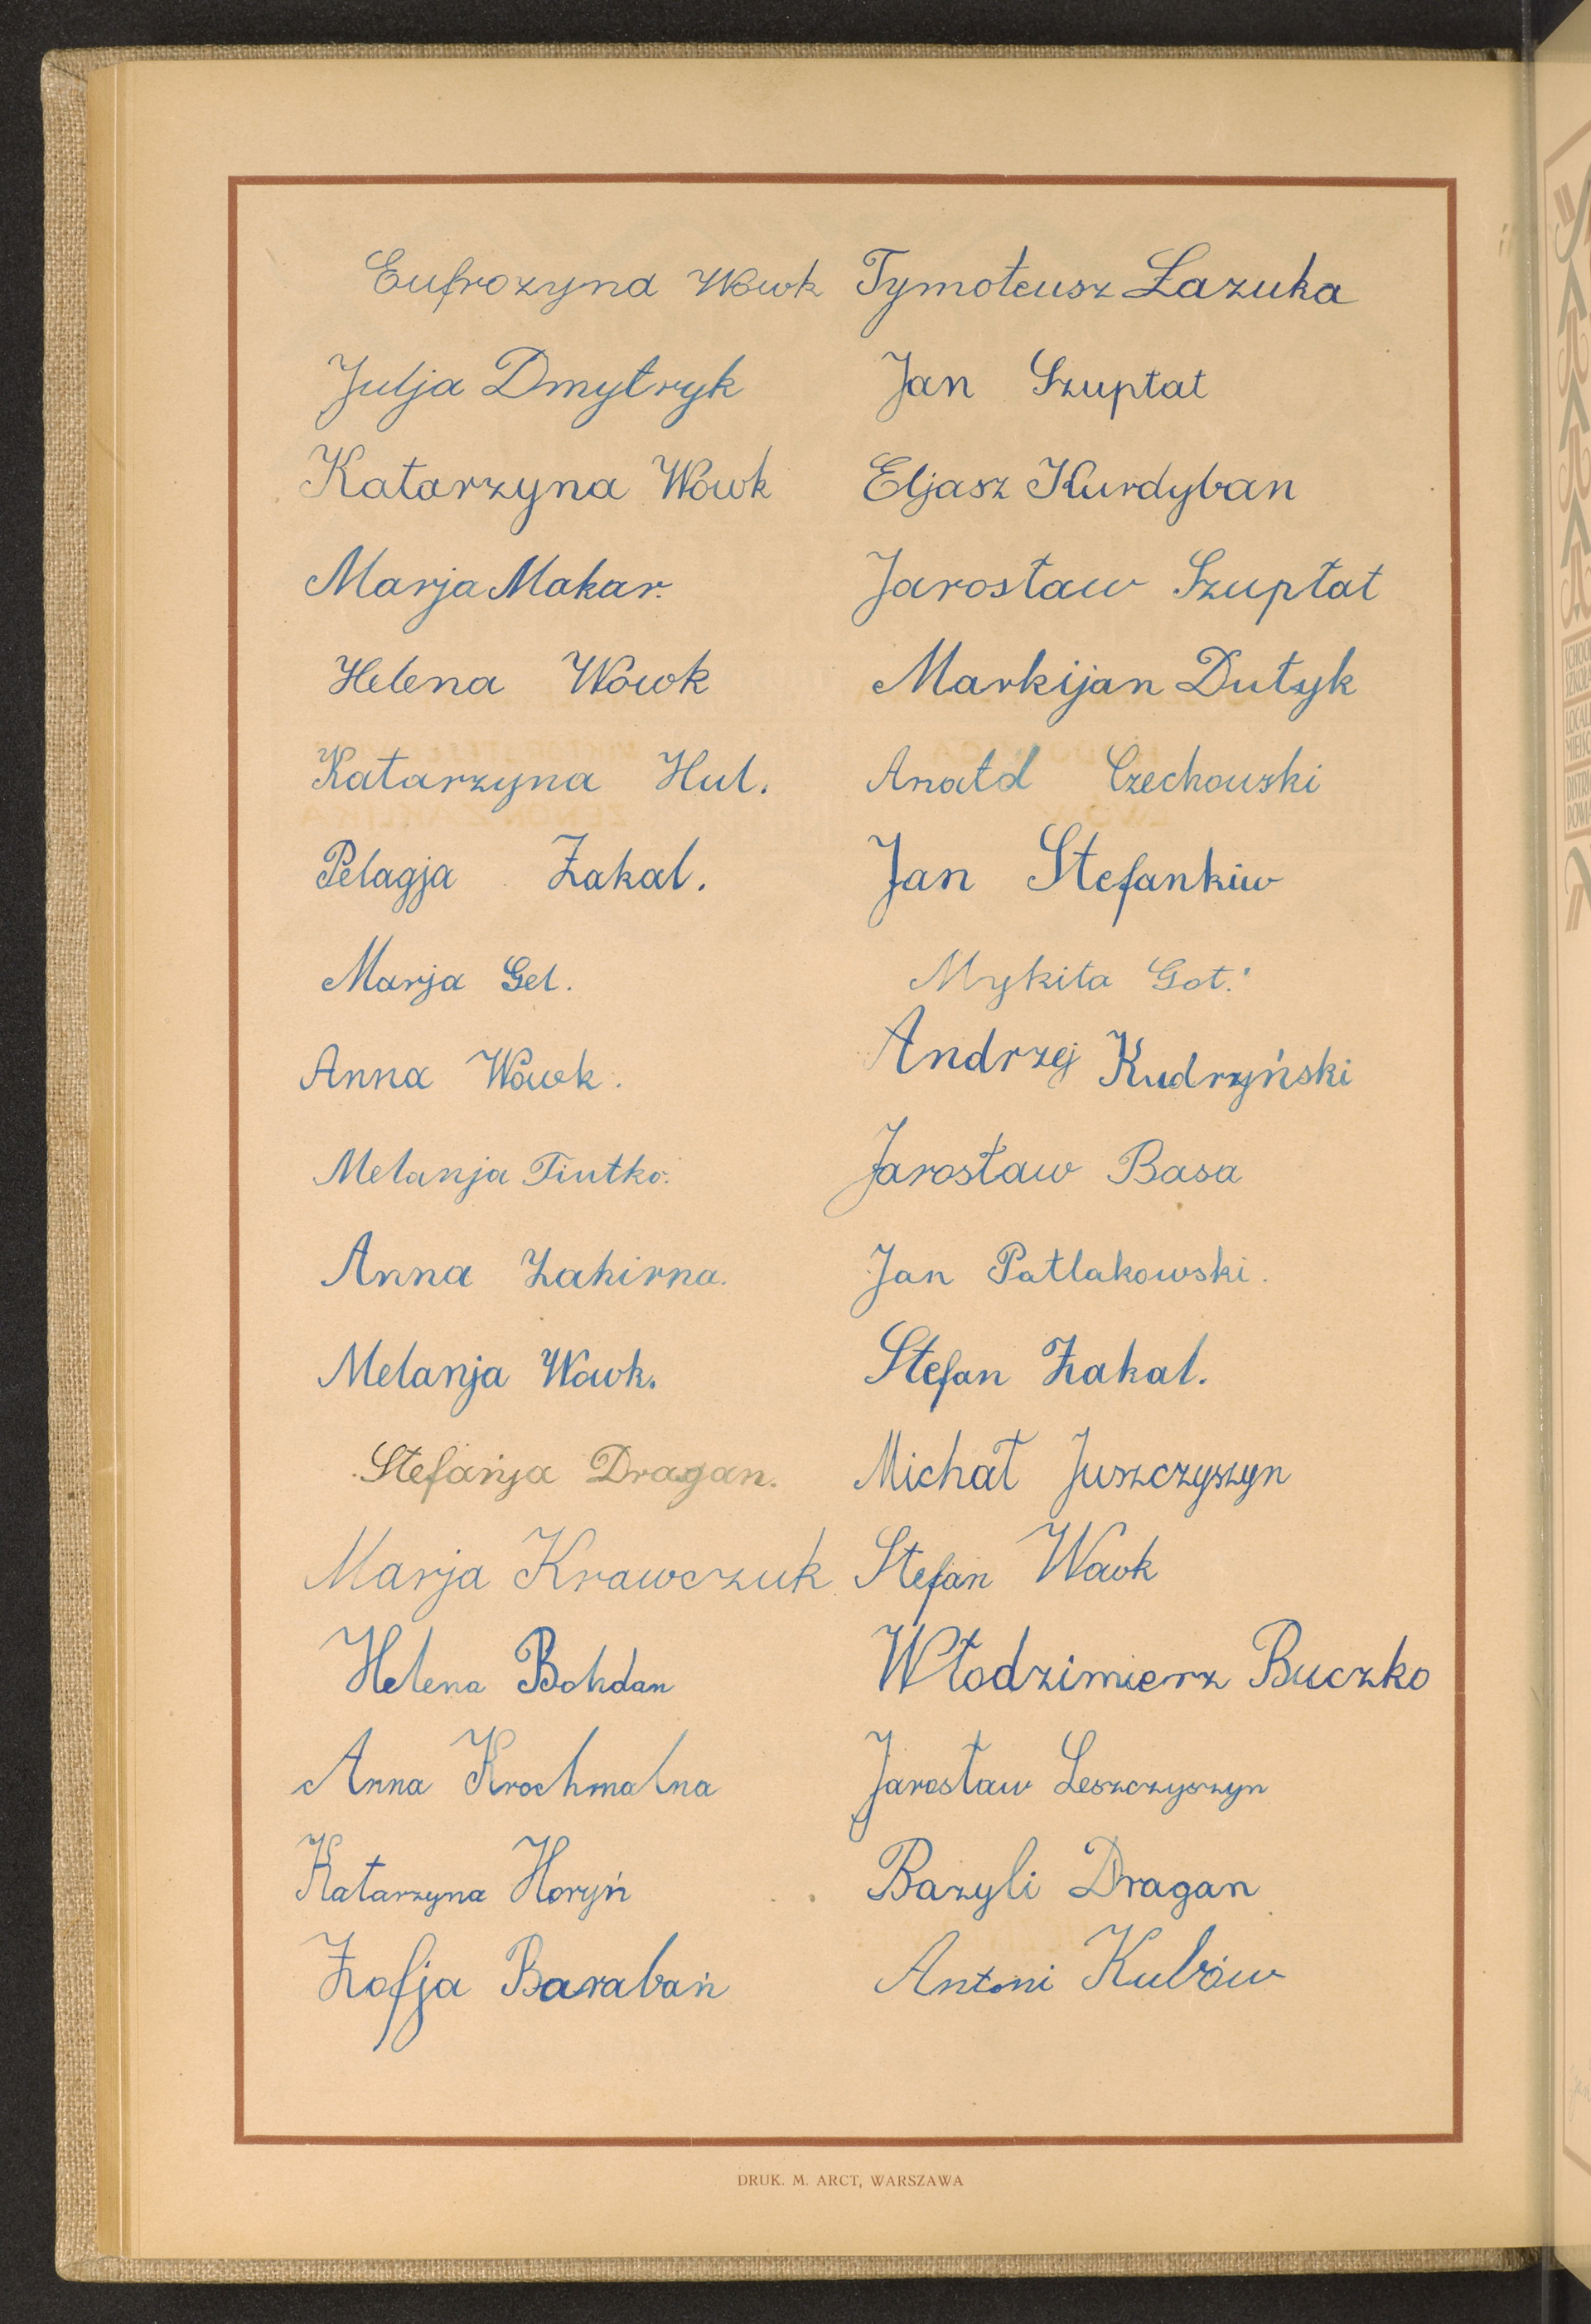 Eufrozyna Wowk Tymoteusz Łazuka
Julja Dmytryk Jan Szuptat
Katarzyna Wówk Eljasz Kurdyban
Marja Makar. Jarosław Szupłat
Helena Wówk Markijan Dutyk
Katarzyna Hul. Anatol Czechowski
Pelagja Zakal. Jan Stefankiw
Marja Gel. Mykita Got.
Anna Wówk. Andrzej Kudryński
Melanja Tiutko. Jarosław Basa
Anna Zahirna. Jan Patlakowski.
Melanja Wowk. Stefan Zakal.
Stefanja Dragan. Michał Juszczyszyn
Marja Krawczuk Stefan Wowk
Helena Bohdan Włodzimierz Buczko
Anna Krochmalna Jarosław Leszczyszyn
Katarzyna Horyń Bazyli Dragan
Zofja Barabań Antoni Kubów
DRUK. M. ARCT, WARSZAWA